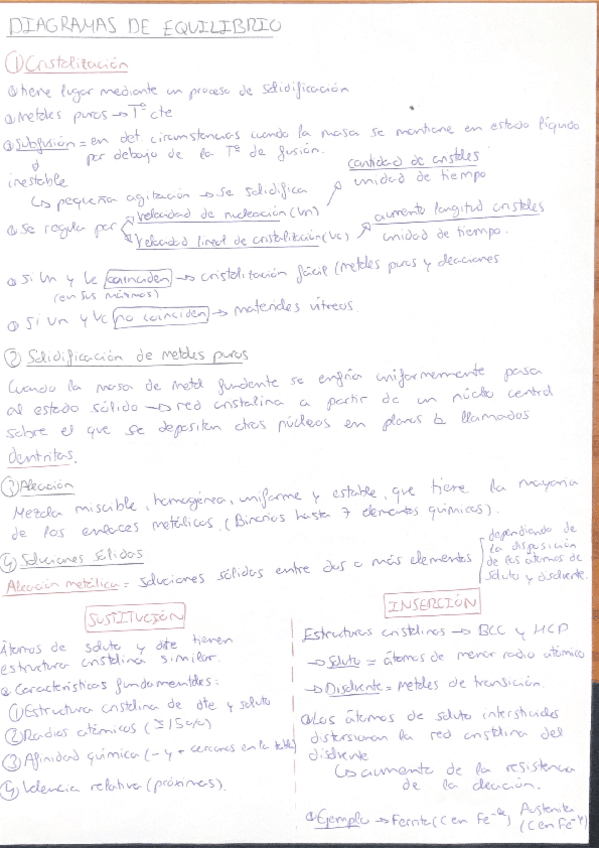 DIAGRAMAS DE EQUILIBRIO
① Cristalización
tiene lugar mediante un proceso de solidificación
Metales puros → Tª cte
subfusión = en det. circunstancias cuando la masa se mantiene en estado líquido
por debajo de la Tª de fusión.
inestable
↳ pequeña agitación → se solidifica
se regula por
velocidad de nucleación (Vn)
cantidad de cristales
unidad de tiempo
velocidad lineal de cristalización (Vc)
aumento longitud cristales
unidad de tiempo.
Si Vn y Vc coinciden → cristalización fácil (metales puros y aleaciones
(en sus máximos)
Si Vn y Vc no coinciden → materiales vítreos.
② Solidificación de metales puros
Cuando la masa de metal fundente se enfría uniformemente pasa
al estado sólido → red cristalina a partir de un núcleo central
sobre el que se depositan otros núcleos en planos llamados
dentritas.
③ Aleación
Mezcla miscible, homogénea, uniforme y estable, que tiene la mayoría
de los enlaces metálicos. (Binarios hasta 7 elementos químicos).
④ Soluciones sólidas
Aleación metálica = soluciones sólidas entre dos o más elementos
dependiendo de
la disposición
de los átomos de
soluto y disolvente.
SUSTITUCIÓN
Átomos de soluto y dte tienen
estructura cristalina similar.
Características fundamentales:
① Estructura cristalina de dte y soluto
② Radios atómicos (≥15%)
③ Afinidad química (- y + cercanos en la tabla)
④ Valencia relativa (próximas).
INSERCIÓN
Estructuras cristalinas → BCC y HCP
→ Soluto = átomos de menor radio atómico
→ Disolvente = metales de transición.
Los átomos de soluto intersticiales
distorsionan la red cristalina del
disolvente
↳ aumento de la resistencia
de la aleación.
Ejemplo → Ferrita (C en Fe-α) Austenita
(C en Fe-γ)